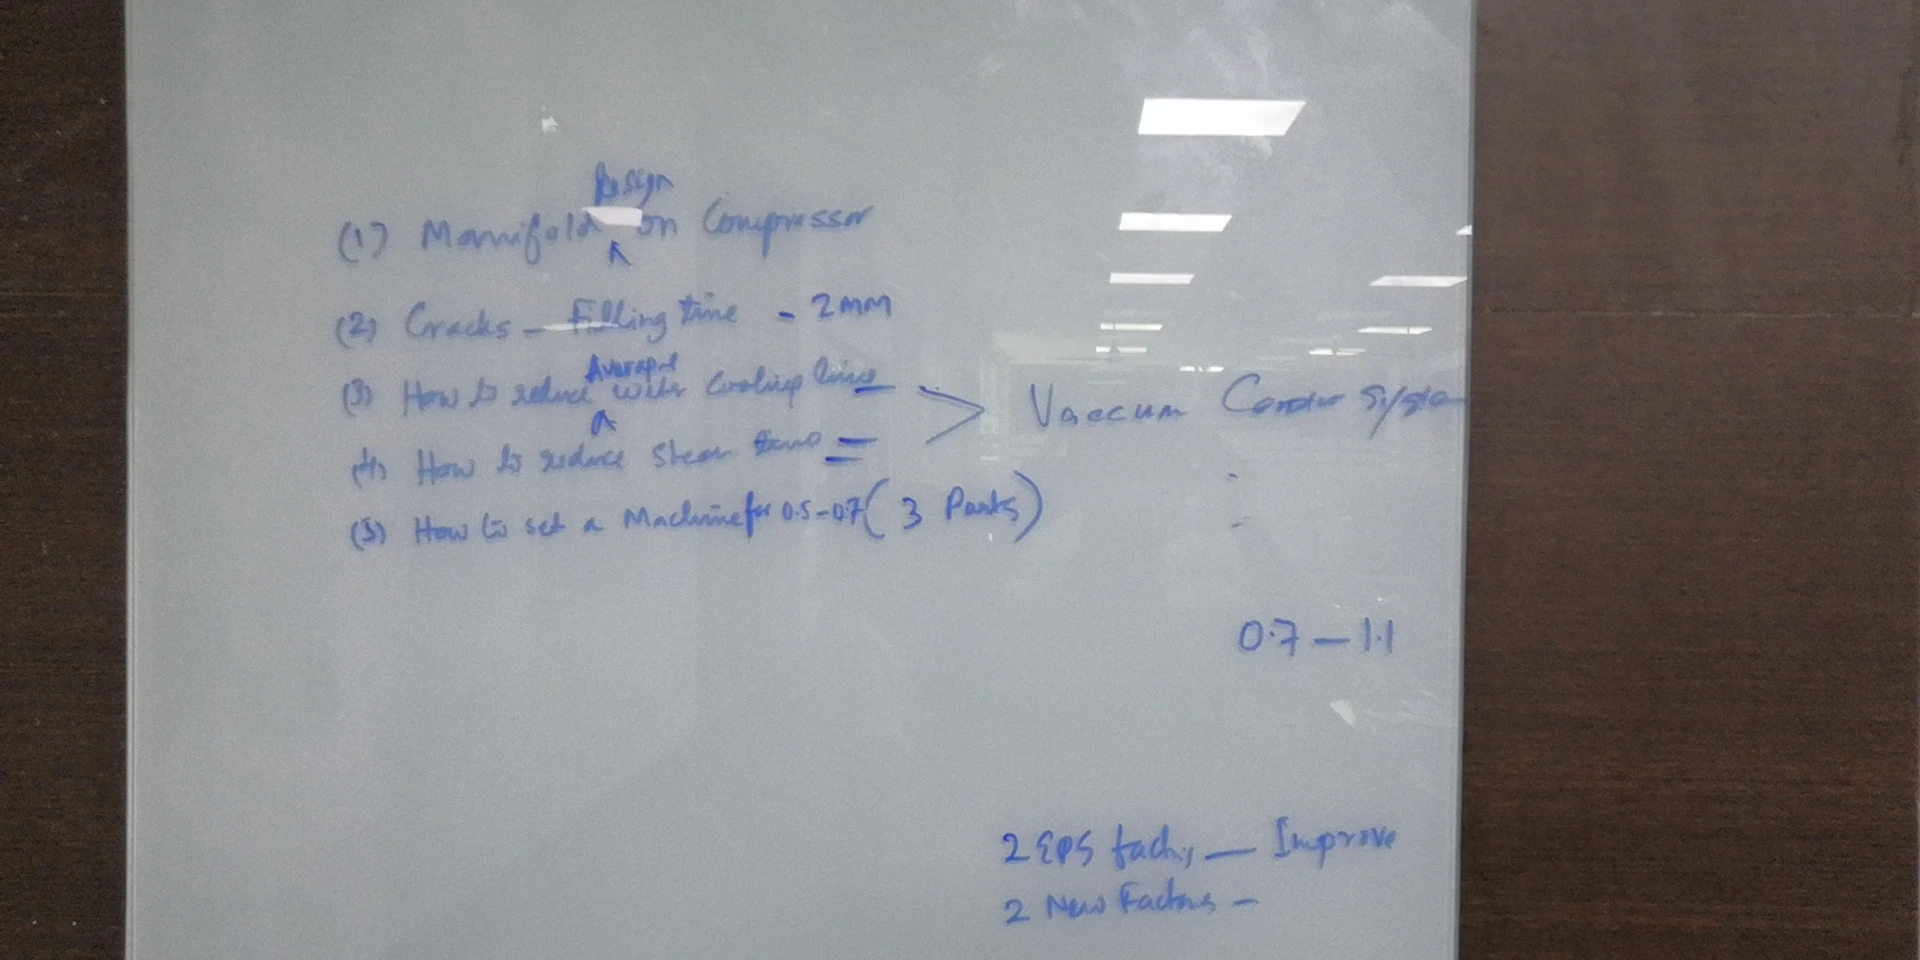 (1) Manifold Design on Compressor
(2) Cracks - Filling time - 2mm
(3) How to reduce Average water Cooling time
(4) How to reduce steam time
Vaccum System
(5) How to set a Machine for 0.5-0.7 (3 Parts)
0.7 - 1.1
2 EPS - Improve
2 New -